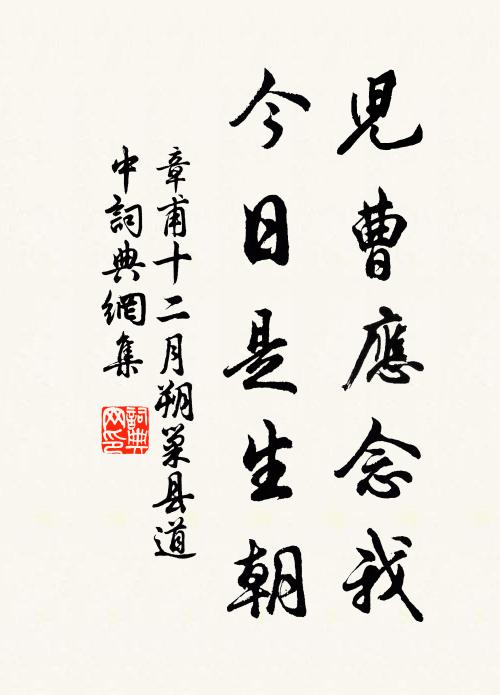 兒曹應念我
今日是生朝
章甫十二月朔巢县道
中詞典網集
詞典
网印